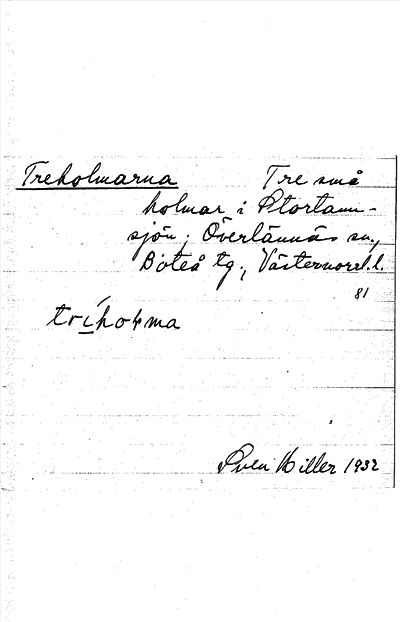 Treholmarna Tre små
holmar i Stortann-
sjön; Överlännäs sn.,
Boteå tg., Västernorrl. l.
81
tríholma
Sven Hiller 1932